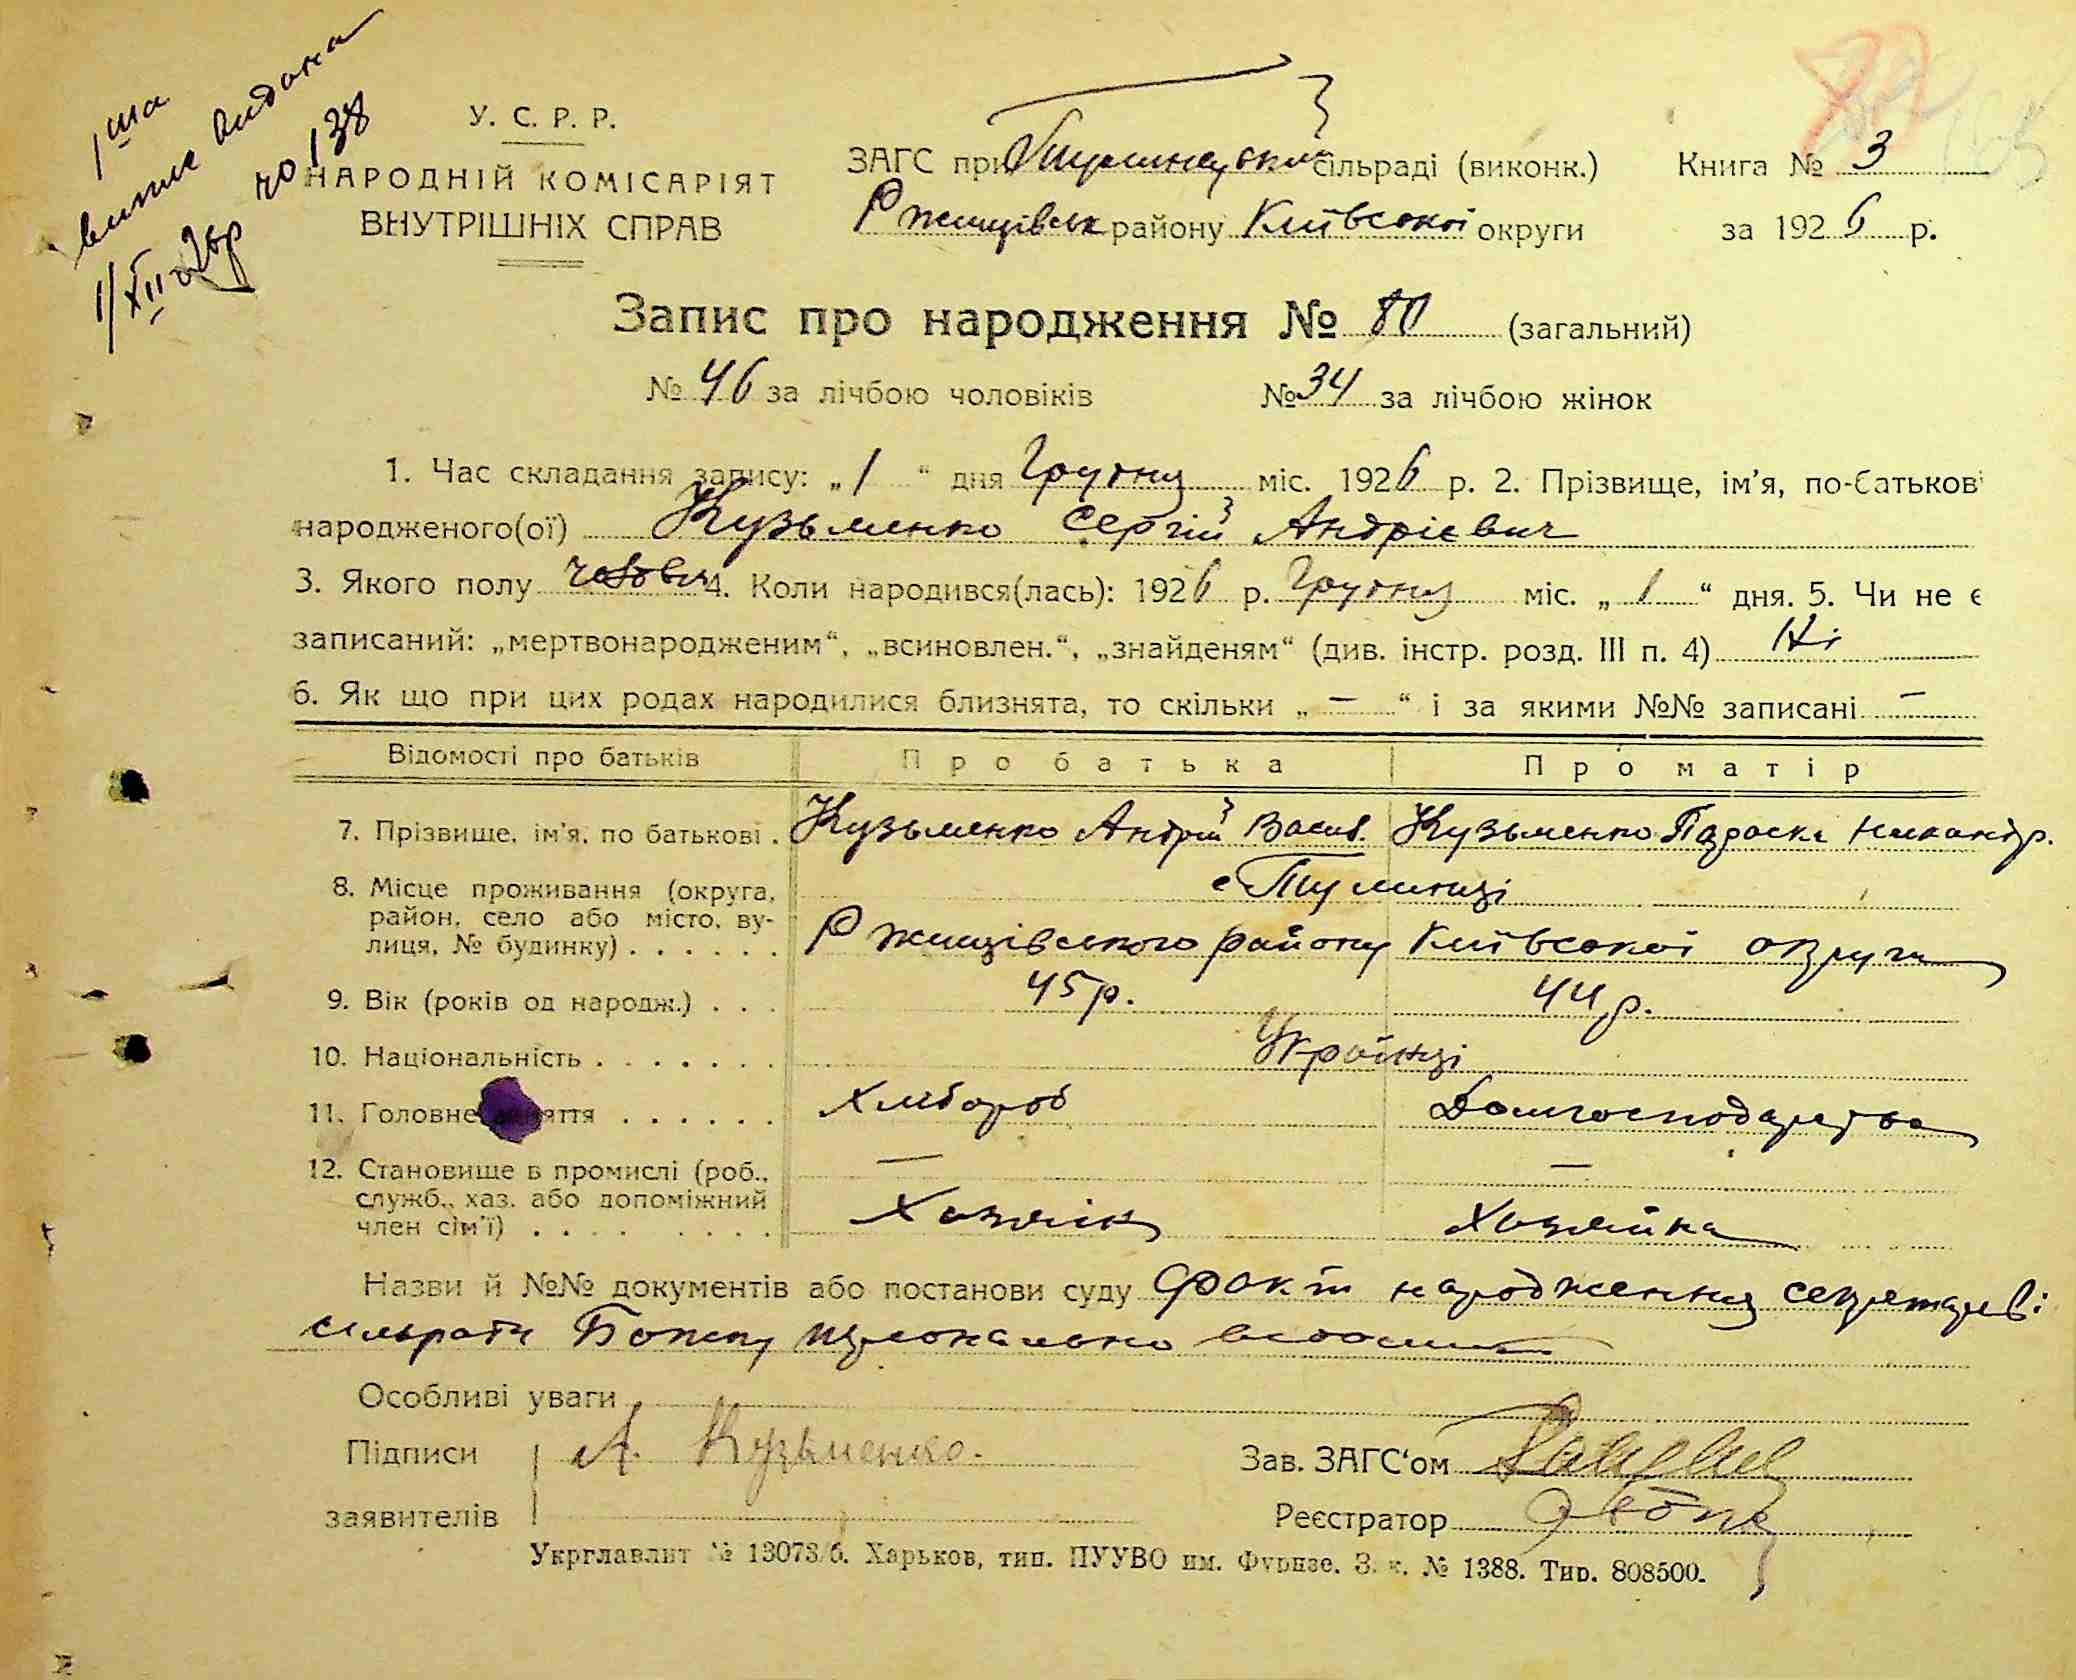 1ша
випис видана
1/XII 26р № 138
У. С. Р. Р.
НАРОДНІЙ КОМІСАРІЯТ
ВНУТРІШНІХ СПРАВ
ЗАГС при Тулинецькій сільраді (виконк.)
Ржищівськ району Київської округи
Книга № 3
за 1926 р.
Запис про народження № 80 (загальний)
№ 46 за лічбою чоловіків № 34 за лічбою жінок
1. Час складання запису: „1“ дня Грудня міс. 1926 р. 2. Прізвище, ім'я, по-батькові
народженого(ої) Кузьменко Сергій Андрієвич
3. Якого полу чолович 4. Коли народився(лась): 1926 р. Грудня міс. „1“ дня. 5. Чи не є
записаний: „мертвонародженим“, „всиновлен.“, „знайденям“ (див. інстр. розд. III п. 4) Ні
6. Як що при цих родах народилися близнята, то скільки „ — “ і за якими №№ записані —
Відомості про батьків Про батька Про матір
7. Прізвище, ім'я, по батькові . Кузьменко Андрій Васил. Кузьменко Параска Никандр.
8. Місце проживання (округа, район, село або місто, вулиця, № будинку) . . . . . . с Тулинці
Ржищівського району Київської округи
9. Вік (років од народж.) . . . 45 р. 44 р.
10. Національність . . . . . . . Українці
11. Головне заняття . . . . . . Хлібороб Домгосподарства
12. Становище в промислі (роб., — —
служб., хаз. або допоміжний
член сім'ї) . . . . . . . . Хозяїн Хозяйка
Назви й №№ документів або постанови суду Факт народження секретареві
сільради персонально
Особливі уваги
Підписи А. Кузьменко. Зав. ЗАГС'ом
заявителів Реєстратор
Укрглавлит № 13073/б. Харьков, тип. ПУУВО им. Фрунзе. З. к. № 1388. Тир. 808500.